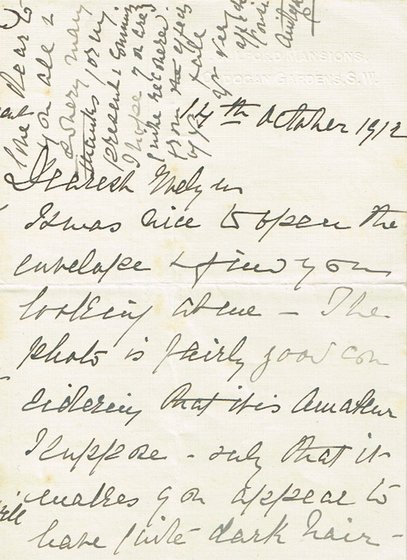 MANSIONS,
CADOGAN GARDENS, S.W.
14th October 1912
Dearest Evelyn
It was nice to open the
envelope & find you
looking at me - The
photo is fairly good con
sidering that it is amateur
I suppose - only that it
makes you appear to
have quite dark hair -
love Dear to
you all &
so very many
thanks for my
present & coming
I hope you are
quite recovered
from the effects
of yr fall
yr very
affecte